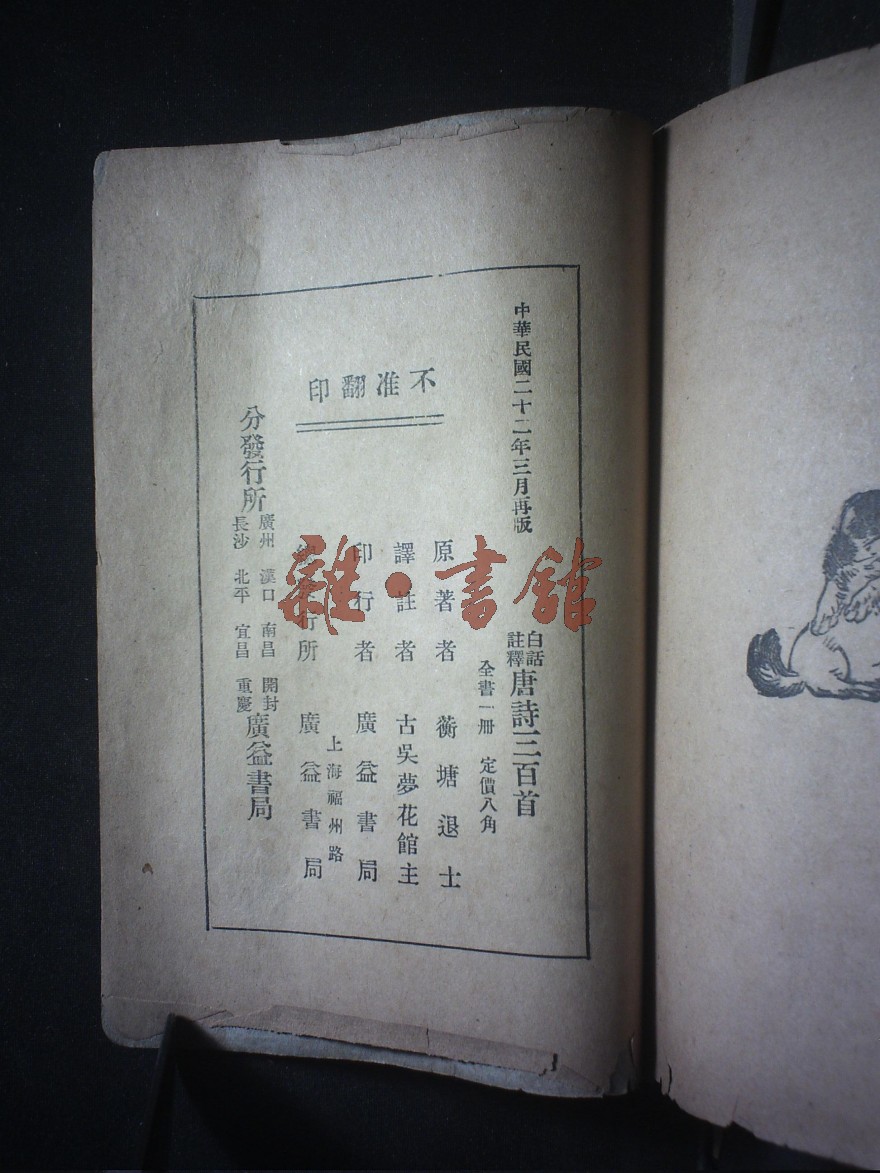 中華民國二十二年三月再版
白話註釋唐詩三百首
全書一冊 定價八角
不准翻印
原著者 蘅塘退士
譯註者 古吳夢花館主
印行者 廣益書局
上海福州路
總發行所 廣益書局
分發行所 廣州 漢口 南昌 開封 長沙 北平 宜昌 重慶 廣益書局
雜·書館